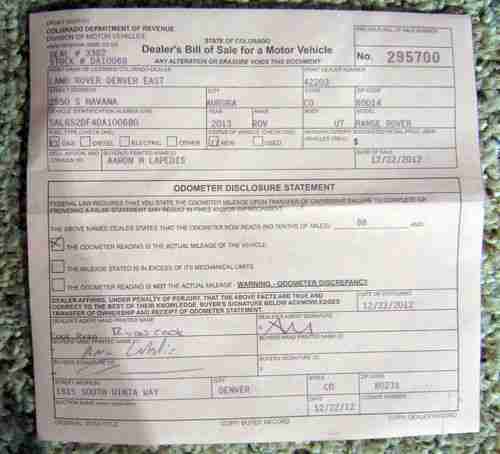 COLORADO DEPARTMENT OF REVENUE
DIVISION OF MOTOR VEHICLES
DEAL # 3302
STOCK # DA10068
STATE OF COLORADO
Dealer's Bill of Sale for a Motor Vehicle
ANY ALTERATION OR ERASURE VOIDS THIS DOCUMENT
No. 295700
LAND ROVER DENVER EAST
42203
STREET ADDRESS
2550 S HAVANA
AURORA
CO
80014
YEAR MAKE BODY MODEL
2013 ROV UT RANGE ROVER
GAS DIESEL ELECTRIC OTHER
NEW USED
$
AARON M LAPEDIS
DATE OF SALE
12/22/2012
ODOMETER DISCLOSURE STATEMENT
FEDERAL LAW REQUIRES THAT YOU STATE THE ODOMETER MILEAGE UPON TRANSFER OF OWNERSHIP. FAILURE TO COMPLETE OR
PROVIDING A FALSE STATEMENT MAY RESULT IN FINES AND/OR IMPRISONMENT.
THE ABOVE NAMED DEALER STATES THAT THE ODOMETER NOW READS (NO TENTHS OF MILES) 88 AND:
THE ODOMETER READING IS THE ACTUAL MILEAGE OF THE VEHICLE.
THE MILEAGE STATED IS IN EXCESS OF ITS MECHANICAL LIMITS.
THE ODOMETER READING IS NOT THE ACTUAL MILEAGE - WARNING - ODOMETER DISCREPANCY
DEALER AFFIRMS, UNDER PENALTY OF PERJURY, THAT THE ABOVE FACTS ARE TRUE AND
CORRECT TO THE BEST OF THEIR KNOWLEDGE. BUYER'S SIGNATURE BELOW ACKNOWLEDGES
TRANSFER OF OWNERSHIP AND RECEIPT OF ODOMETER STATEMENT.
DATE OF STATEMENT
12/22/2012
DEALER AGENT HAND PRINTED NAME
DEALER AGENT SIGNATURE
BUYER'S SIGNATURE (S)
STREET ADDRESS
1815 SOUTH UINTA WAY
CITY
DENVER
STATE
CO
ZIP CODE
80231
DATE
12/22/12
COPY BUYER RECORD
COPY DEALER RECORD